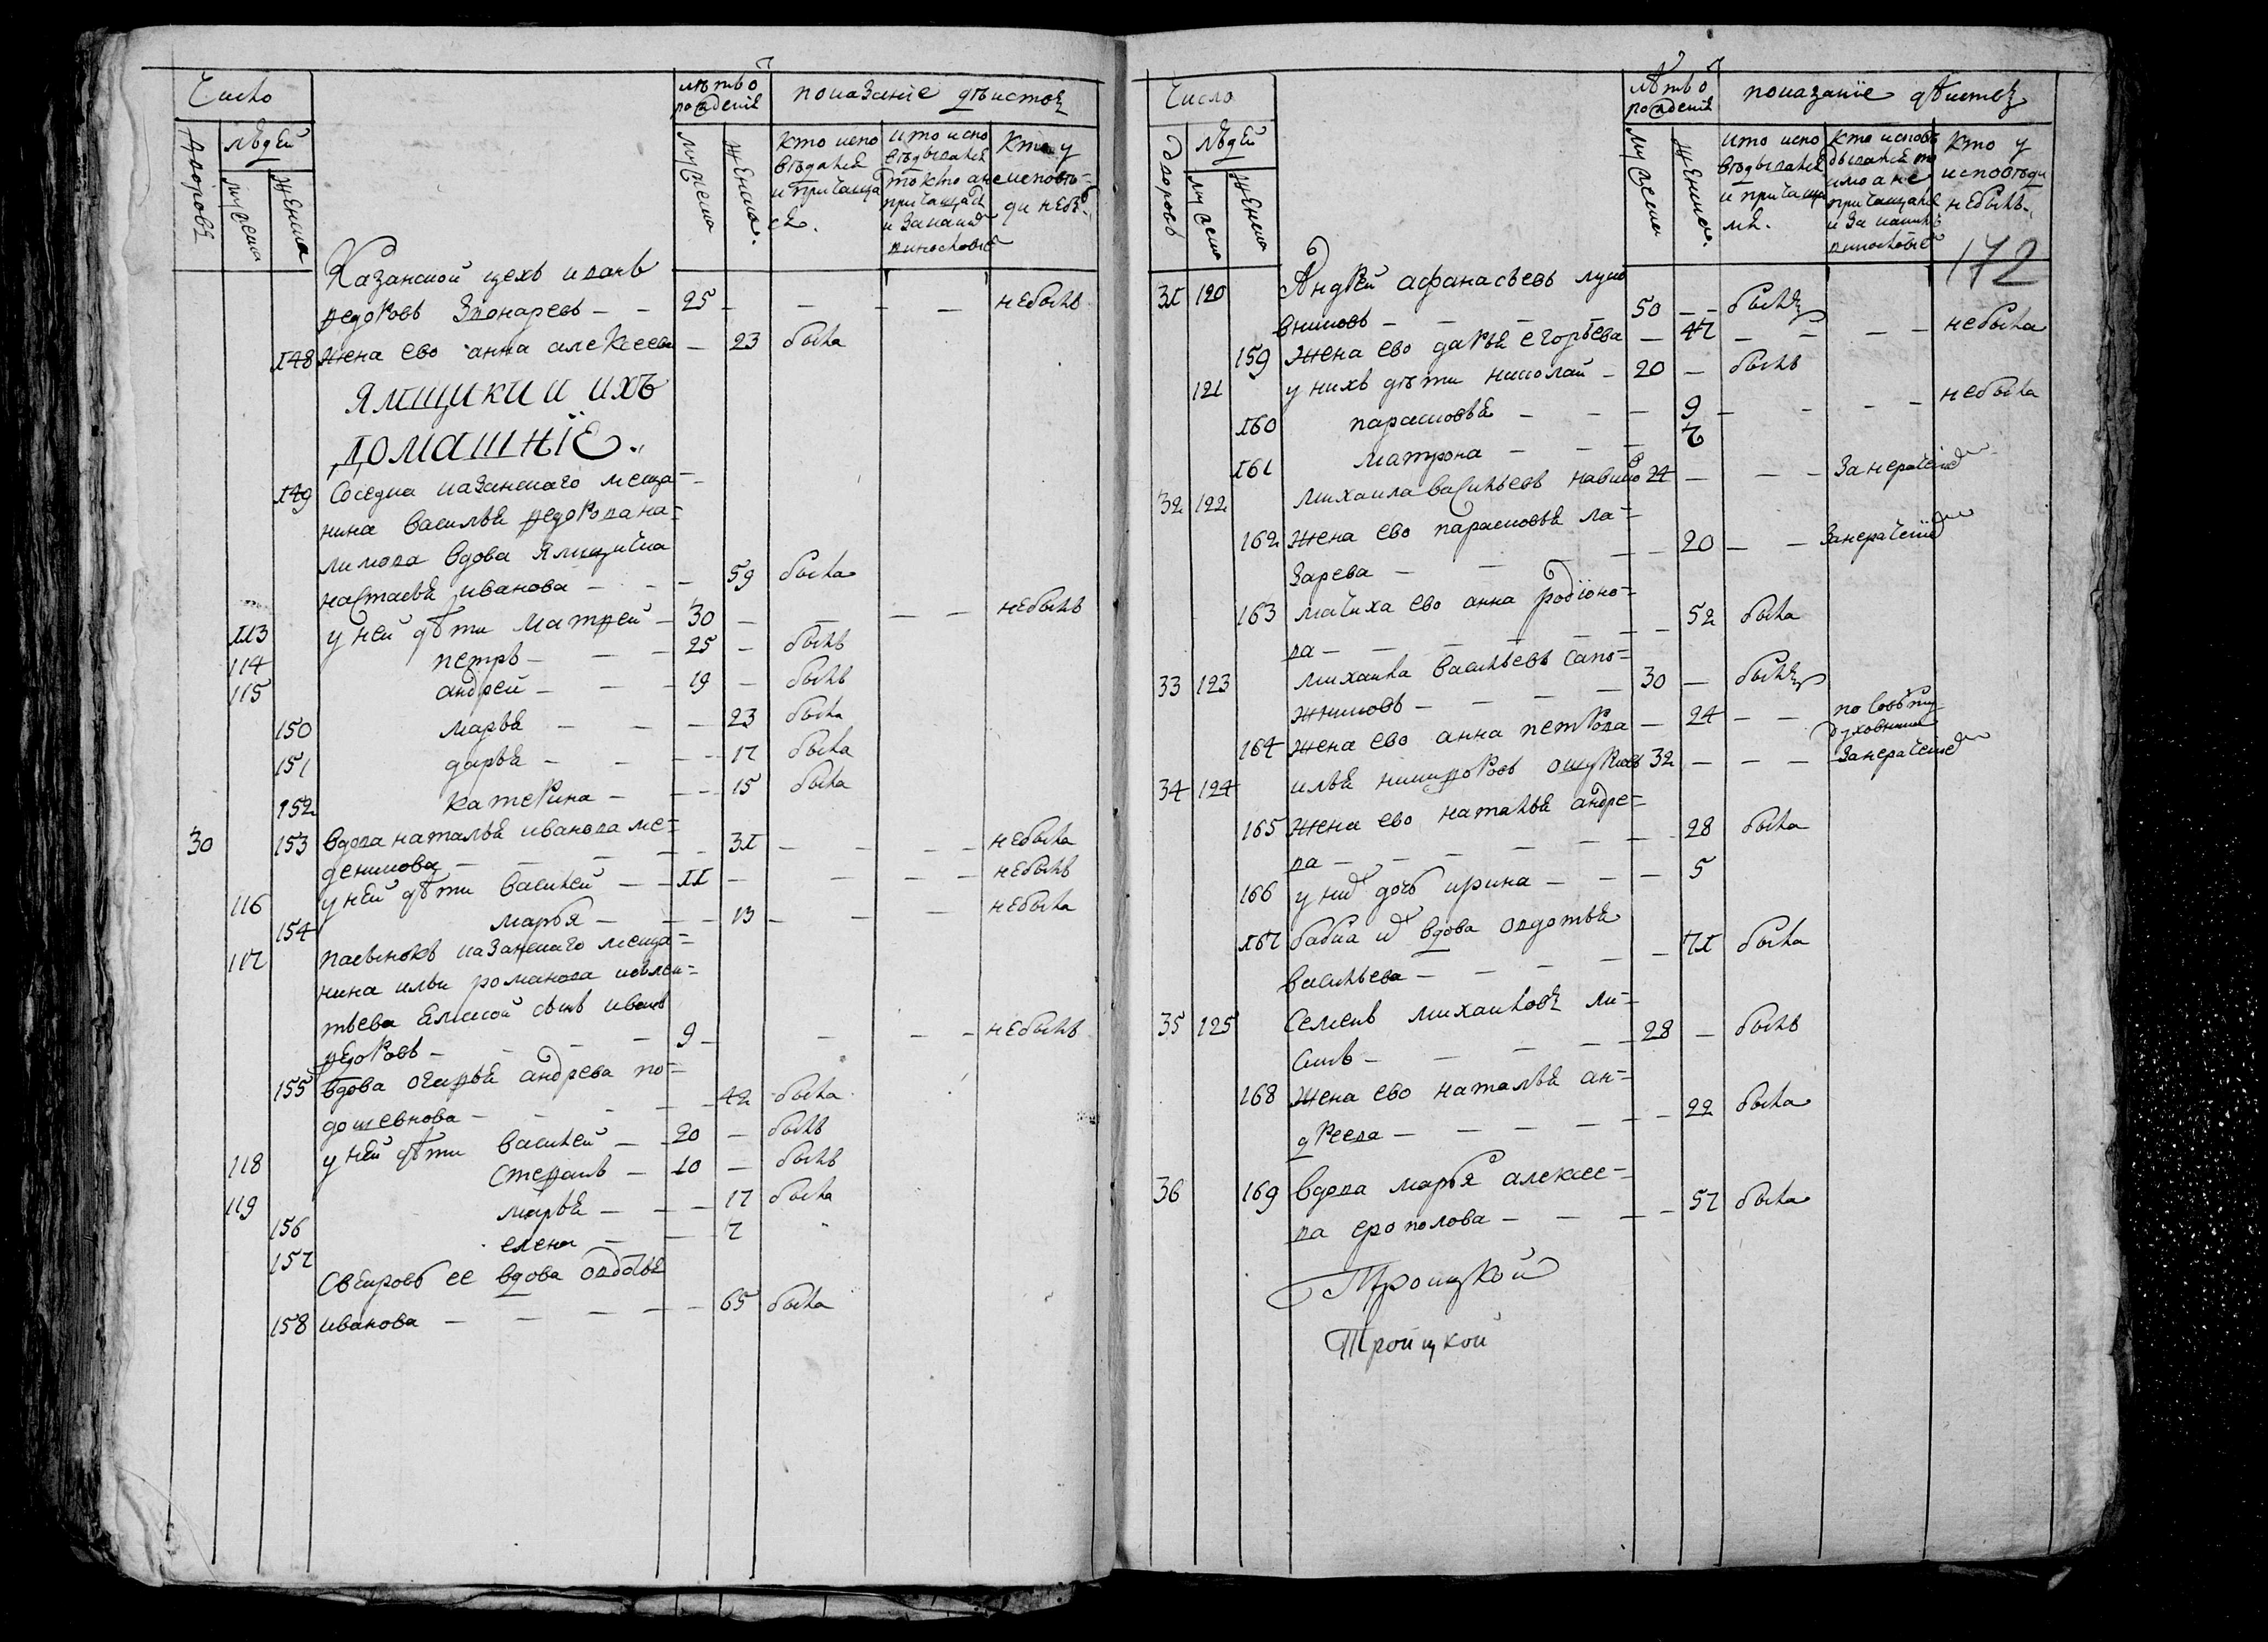 Число
лѣтъ о
рождениі
показание дѣиствъ
дворовъ
людей
мужеска
женска
мужеска
женска
кто испо
вѣдался
и причаща
ся
кто испо
вѣдывался
токмо а не
причащался
и за какимъ
винословиемъ
кто у
исповѣ=
ди не бы
Казанской цехъ иванъ
федоровъ Звонаревъ — — 25 — — — — не былъ
148 жена ево анна алексеева — 23 была
ЯМЩИКИ И ИХЪ
ДОМАШНІЕ
149 Соседка казанскаго меща=
нина василья федорова на=
лимова вдова ямщичка
настасья иванова — — — 59 была
113 у ней дѣти матфей — 30 — — — — не былъ
114 петръ — — — 25 — былъ
115 андрей — — — 19 — былъ
150 марья — — — 23 была
151 дарья — — — 17 была
152 катерина — — — 15 была
30 153 вдова наталья иванова ме=
деникова — — — 31 — — — — не была
116 у ней дѣти василей — — 11 — — — — не былъ
154 марья — — — 13 — — — не была
117 пасынокъ казанскаго меща=
нина ильи романова
тьева сынъ иванъ
федоровъ — — — 9 — — — — не былъ
155 вдова андрева по=
дошевнова — — — 42 была
118 у ней дѣти василей — 20 — былъ
119 стефанъ — 10 — былъ
156 марья — — — 17 была
157 елена — — — 7
свекровь ее вдова овдотья
158 иванова — — — 65 была
Число
лѣтъ о
рождениі
показаніе дѣиствъ
дворовъ
людей
мужеска
женска
мужеска
женска
кто испо
вѣдывался
и причаща
лся
кто исповѣ
дывался то
кмо а не
причащался
и за какимъ
винословиемъ
кто у
исповѣди
не былъ
172
31 120 Андрей афанасьевъ луко
вниковъ — — — 50 — — былъ
159 жена ево дарья егорьева — 47 — — — — не была
121 у нихъ дѣти николай — 20 — былъ
160 парасковья — — — 9 — — — — не была
161 матрона — — — 7
32 122 михаила васильевъ 24 — — — за нерачениемъ
162 жена ево парасковья ла=
зарева — — — 20 — — за нерачениемъ
163 мачиха ево анна родионо=
ва — — — 52 была
33 123 михаила васильевъ сапо=
жниковъ — — — 30 — былъ
164 жена ево анна петрова — 24 — — по совѣту
духовника
34 124 илья никифоровъ 32 — — — за нерачениемъ
165 жена ево наталья андре=
ва — — — 28 была
166 у нихъ дочь ирина — — — 5
167 бабка ихъ вдова овдотья
васильева — — — 71 была
35 125 Семенъ михаиловъ ли=
синъ — — — 28 — былъ
168 жена ево наталья ан=
дреева — — — 22 была
36 169 вдова марья алексее=
ва ерополова — — — 57 была
Троицкой
Троицкой